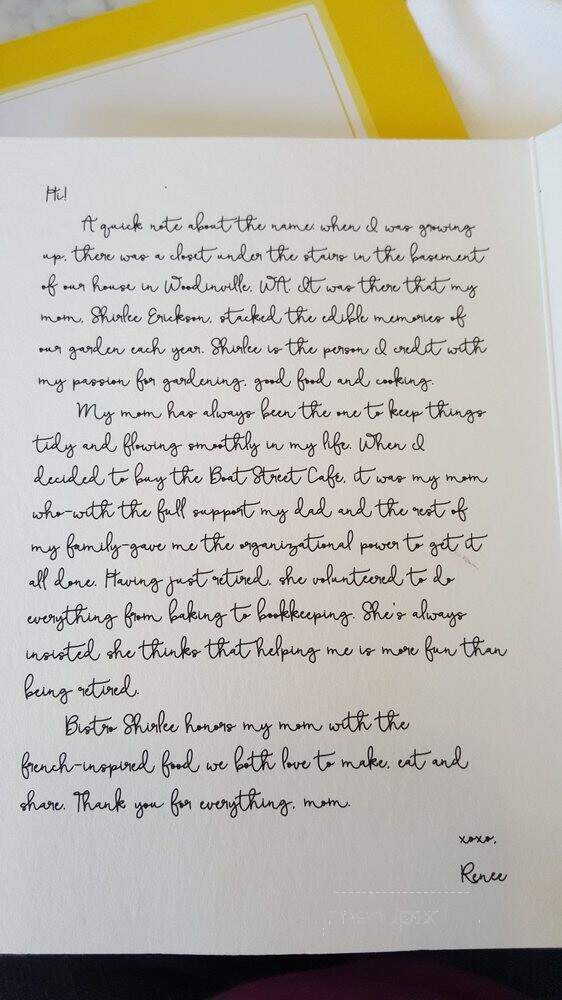 Hi!
A quick note about the name: when I was growing
up, there was a closet under the stairs in the basement
of our house in Woodinville, WA. It was there that my
mom, Shirlee Erickson, stacked the edible memories of
our garden each year. Shirlee is the person I credit with
my passion for gardening, good food and cooking.
My mom has always been the one to keep things
tidy and flowing smoothly in my life. When I
decided to buy the Boat Street Café, it was my mom
who-with the full support my dad and the rest of
my family-gave me the organizational power to get it
all done. Having just retired, she volunteered to do
everything from baking to bookkeeping. She's always
insisted she thinks that helping me is more fun than
being retired.
Bistro Shirlee honors my mom with the
french-inspired food we both love to make, eat and
share. Thank you for everything, mom.
xoxo,
Renee